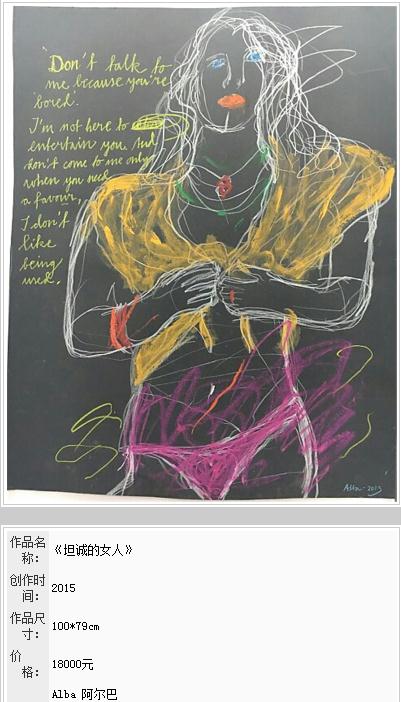 "Don't talk to
me because you're
bored.
I'm not here to
entertain you. And
don't come to me only
when you need
a favour,
I don't
like
being
used.
Alba - 2015
作品名称： 《坦诚的女人》
创作时间： 2015
作品尺寸： 100*79cm
价格： 18000元
Alba 阿尔巴